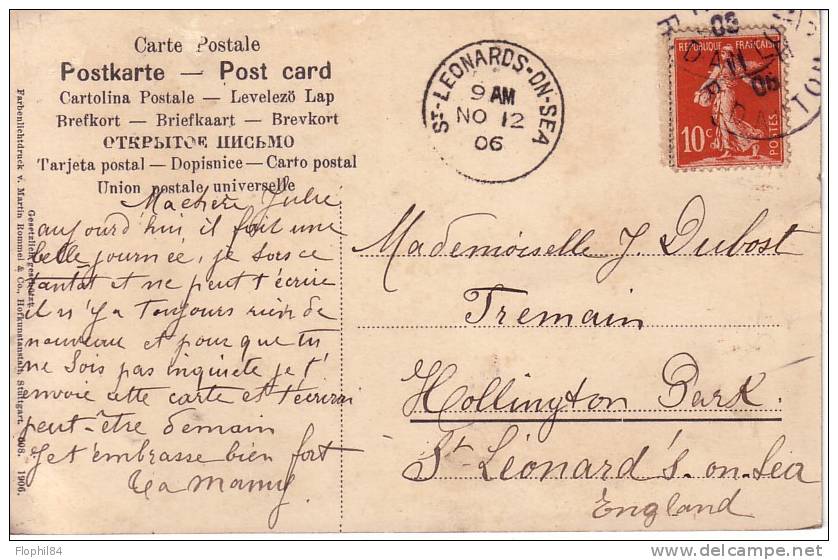 Carte Postale
Postkarte — Post card
Cartolina Postale — Levelező Lap
Brefkort — Briefkaart — Brevkort
ОТКРЫТОЕ ПИСЬМО
Tarjeta postal — Dopisnice — Carto postal
Union postale universelle
Ma chère Julie
aujourd'hui il fait une
belle journée, je sors ce
tantot et ne peut t'écrire
il n'y a toujours rien de
nouveau et pour que tu
ne sois pas inquiete je t'
envoie cette carte et t'écrirai
peut-être demain
Je t'embrasse bien fort
ta mamy
Gesetzlich geschützt.
Farbenlichtdruck v. Martin Rommel & Co., Hofkunstanstalt, Stuttgart. 608. 1906.
ST-LEONARDS-ON-SEA
9 AM
NO 12
06
REPUBLIQUE FRANÇAISE
10 c
POSTES
11
06
Mademoiselle J. Dubost
Tremain
Hollington Park.
St Léonard's-on-Sea
England
Flophil84
http://flophil84.delcampe.net